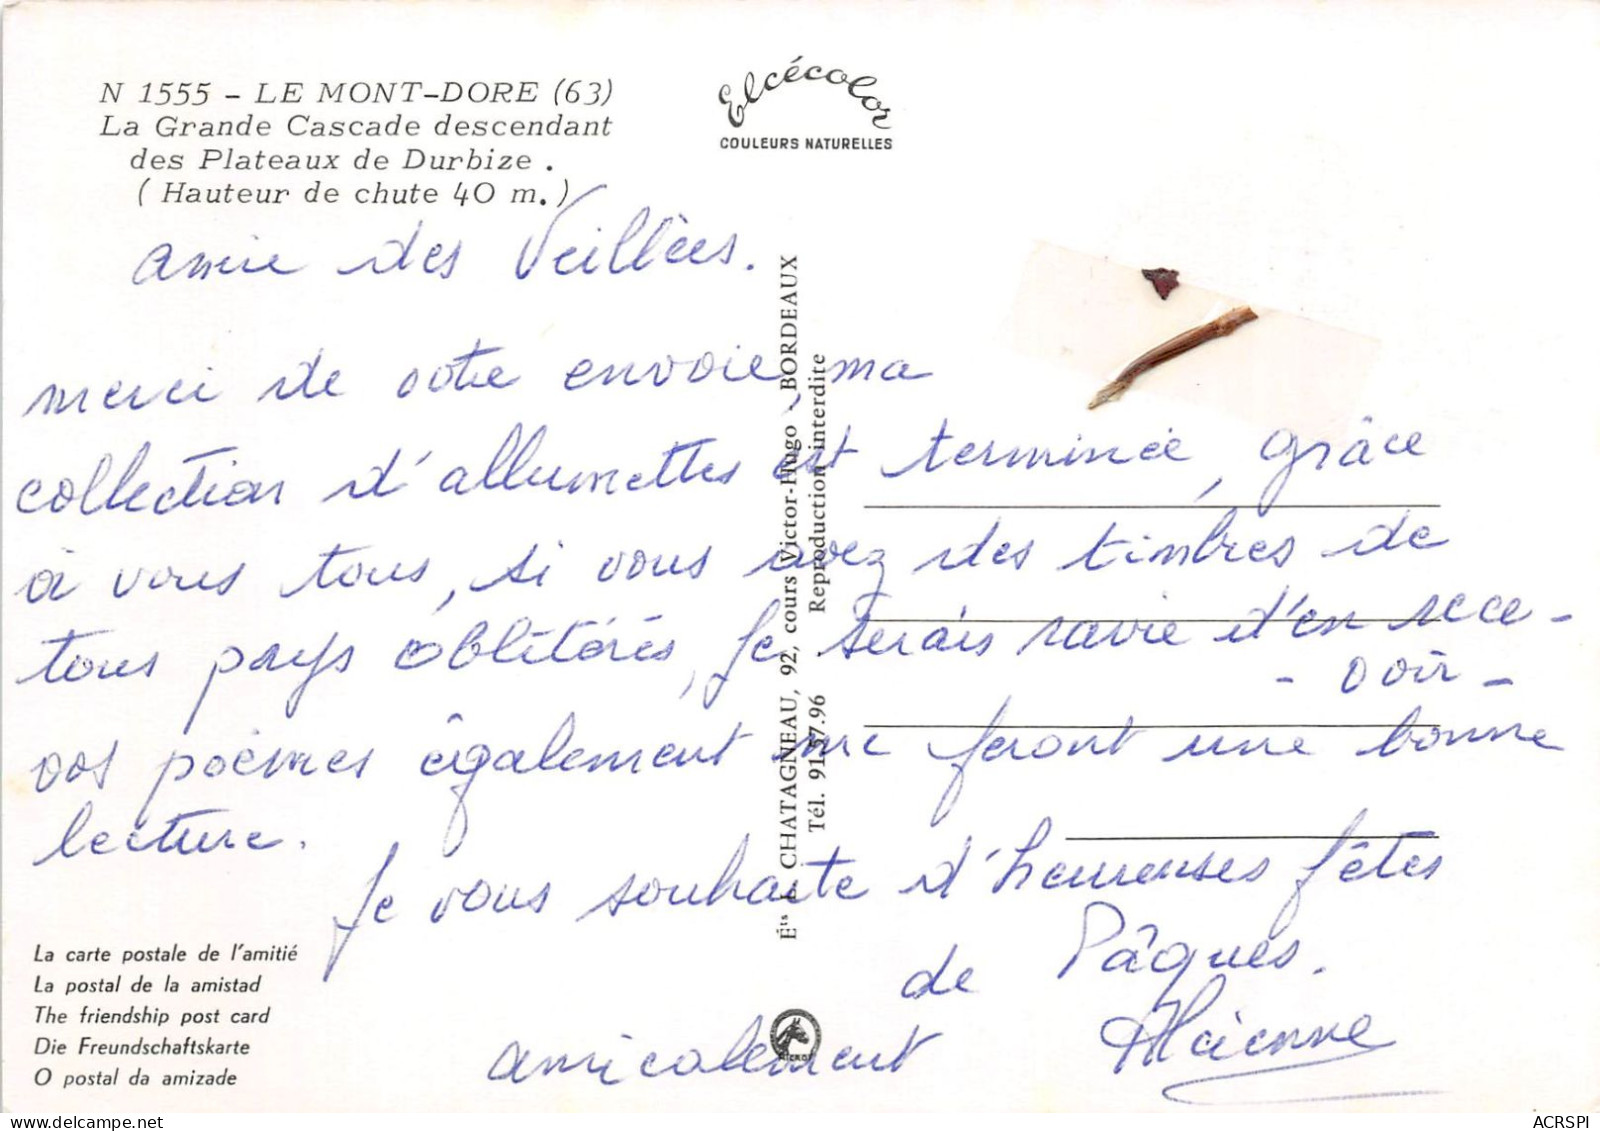 N 1555 - LE MONT-DORE (63)
La Grande Cascade descendant
des Plateaux de Durbize .
( Hauteur de chute 40 m.)
Elcécolor
COULEURS NATURELLES
amie des Veillées.
merci de votre envoie, ma
collection d'allumettes est terminée, grâce
à vous tous, si vous avez des timbres de
tous pays oblitérés, je serais ravie d'en rece-
- voir -
vos poèmes également me feront une bonne
lecture.
Je vous souhaite d'heureuses fêtes
de Pâques.
amicalement
La carte postale de l'amitié
La postal de la amistad
The friendship post card
Die Freundschaftskarte
O postal da amizade
CHATAGNEAU, 92, cours Victor-Hugo, BORDEAUX
Tél. 91.57.96 Reproduction interdite
ACRSPI